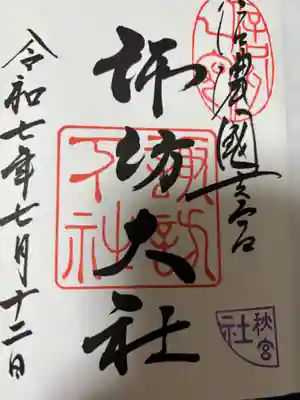 信濃國一之宮
諏訪大社
諏訪下社
秋宮
社
令和七年七月十二日